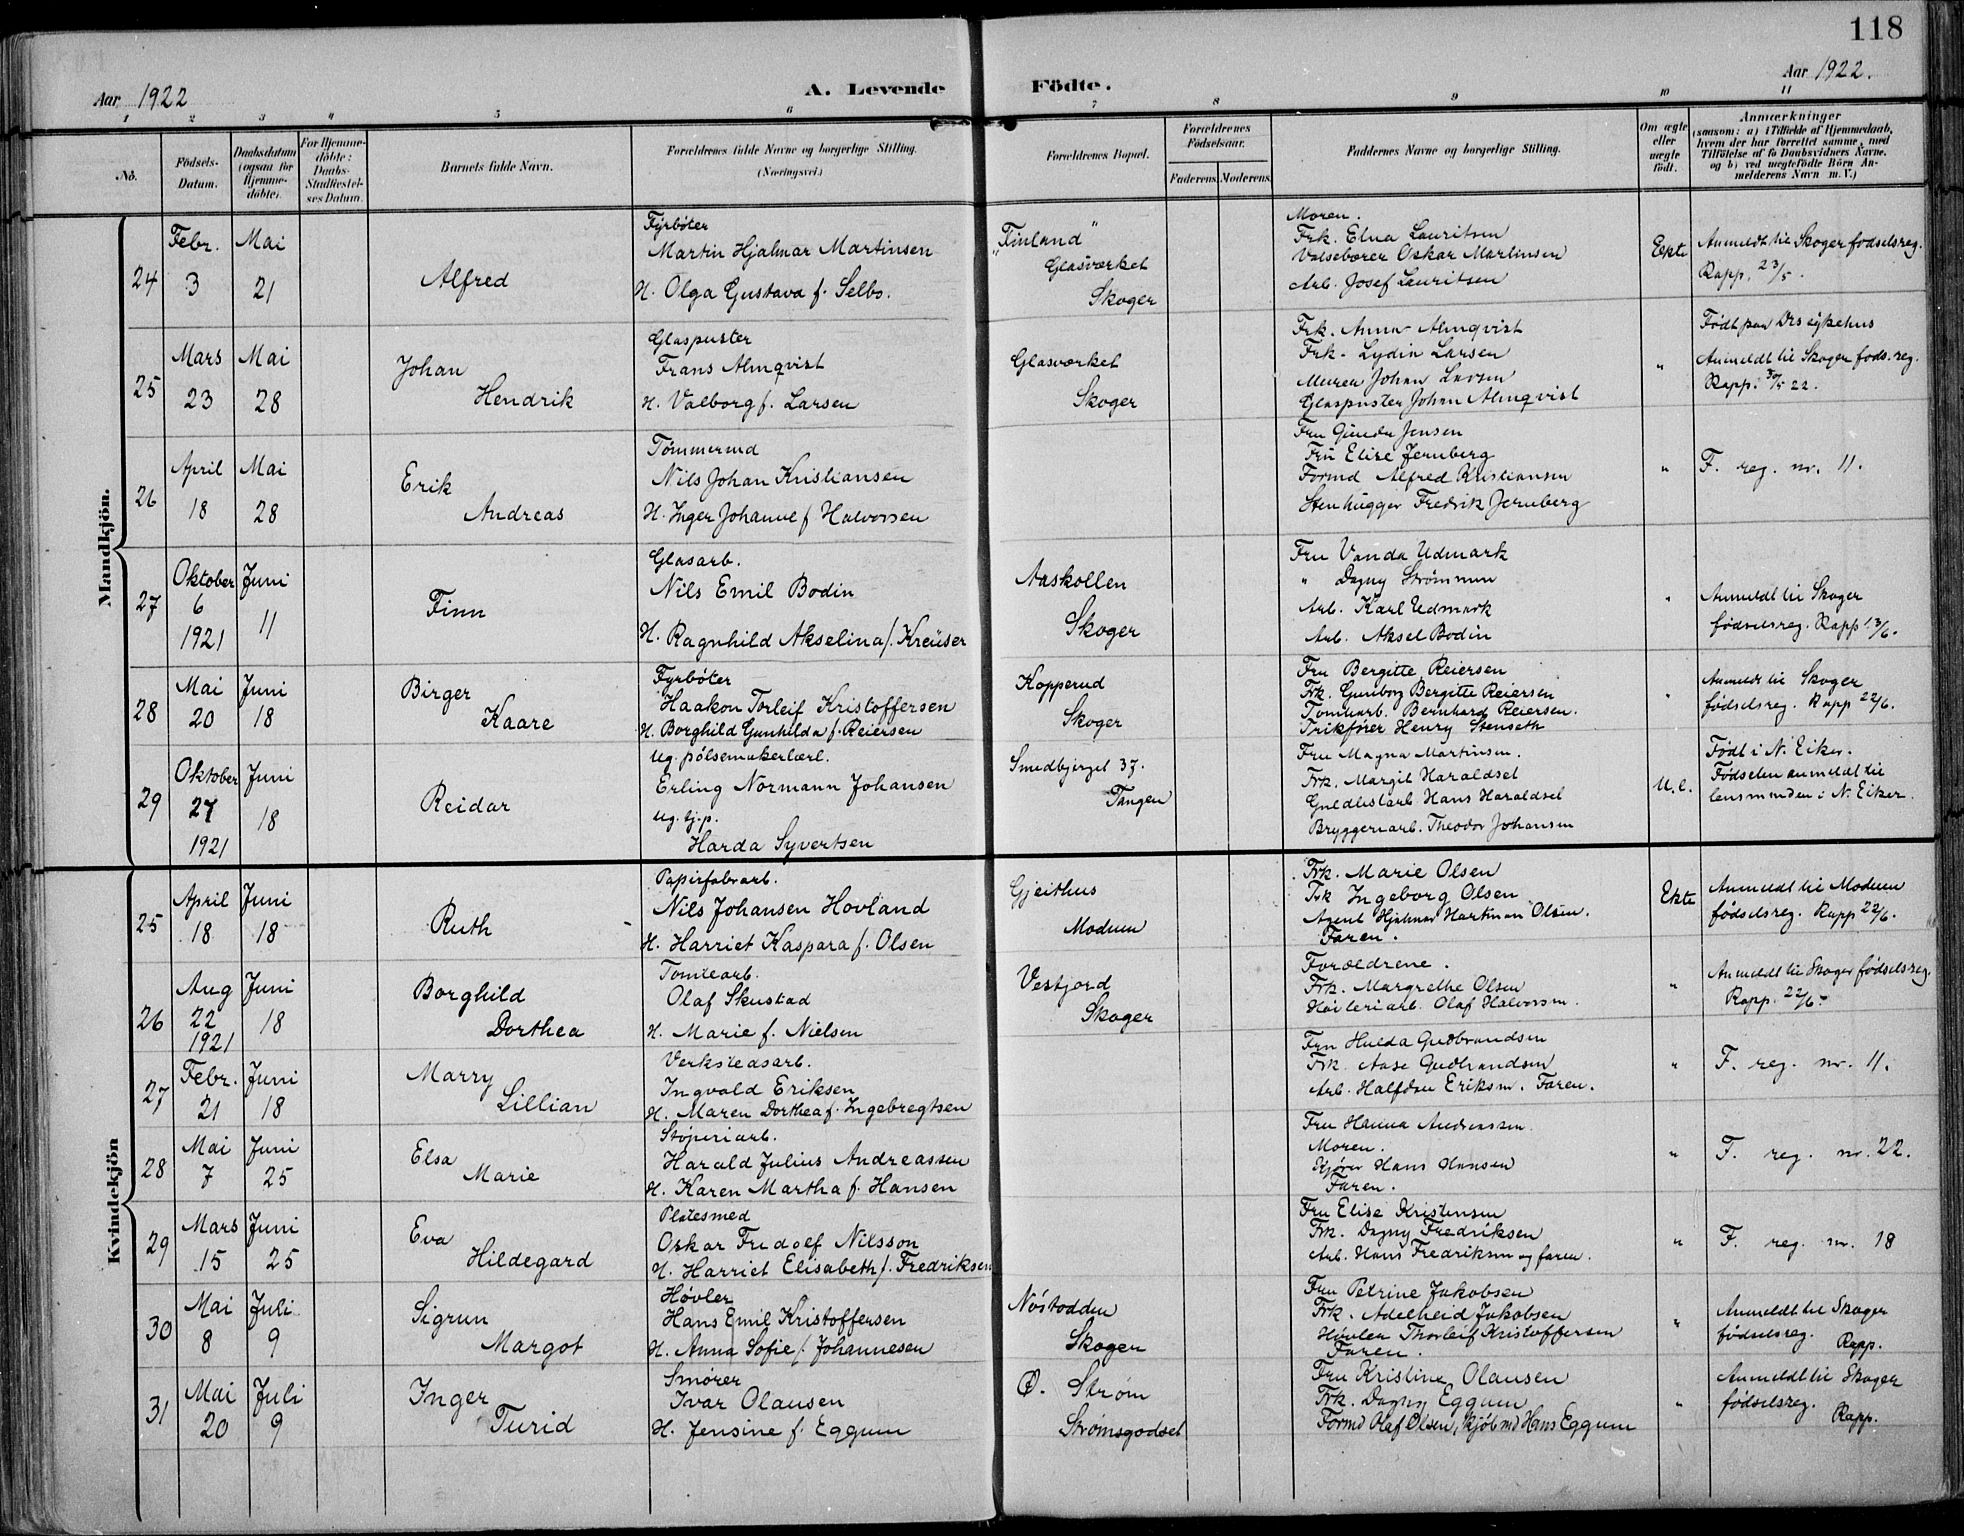 118
Aar 1922
A. Levende Födte.
Aar 1922.
1 2 3 4 5 6 7 8 9 10 11
No.
Födsels-Datum.
Daabsdatum (ogsaa for Hjemme-döbte).
For Hjemme-döbte: Daabs-Stadfæstel-ses Datum.
Barnets fulde Navn.
Forældrenes fulde Navne og borgerlige Stilling. (Næringsvei.)
Forældrenes Bopæl.
Forældrenes Födselsaar.
Faderens. Moderens.
Faddernes Navne og borgerlige Stilling.
Om ægte eller uægte födt.
Anmærkninger
(saasom: a) i Tilfælde af Hjemmedaab, hvem der har forrettet samme, med Tilföielse af to Daabsvidners Navne, og b) ved uægtefödte Börn An-melderens Navn m. V.)
Mandkjön.
24
Febr. 3
Mai 21
Alfred
Fyrböter
Martin Hjalmar Martinsen
H. Olga Gustava f. Selbo.
"Finland"
Glasværket
Skoger
Moren.
Frk. Elna Lauritsen
Valsebærer Oskar Martinsen
Arb. Josef Lauritsen
Ekte
Anmeldt til Skoger fodselsreg.
Rapp. 23/5.
25
Mars 23
Mai 28
Johan
Hendrik
Glaspuster
Frans Almqvist
H. Valborg f. Larsen
Glasværket
Skoger
Frk. Anna Almqvist
Frk. Lydia Larsen
Murer Johan Larsen
Glaspuster Johan Almqvist
"
Født paa Drs sykehus
Anmeldt til Skoger føds.reg.
Rapp. 30/5 22.
26
April 18
Mai 28
Erik
Andreas
Tømmermd
Nils Johan Kristiansen
H. Inger Johanne f Halvorsen
Fru Gunda Jensen
Fru Elise Jernberg
Formd Alfred Kristiansen
Stenhugger Fredrik Jernberg
"
F. reg. nr. 11.
27
Oktober 6 1921
Juni 11
Finn
Glasarb.
Nils Emil Bodin
H. Ragnhild Akselina f. Kreüser
Aaskollen
Skoger
Fru Vanda Udmark
" Dagny Strømmen
Arb. Karl Udmark
Arb. Aksel Bodin
"
Anmeldt til Skoger
fødselsreg. Rapp 13/6.
28
Mai 20
Juni 18
Birger
Kaare
Fyrböter
Haakon Torleif Kristoffersen
H. Borghild Gunhilda f. Reiersen
Kopperud
Skoger
Fru Bergitte Reiersen
Frk. Gunborg Bergitte Reiersen
Tomtearb. Bernhard Reiersen.
Trikfører Henry Stenseth
"
Anmeldt til Skoger
fødselsreg. Rapp 22/6.
29
Oktober 27 1921
Juni 18
Reidar
Ug. pølsemakerlærl.
Erling Normann Johansen
Ug. tj.p.
Harda Syvertsen
Smedbjerget 37.
Tangen
Fru Magna Martinsen.
Frk. Margit Haraldset
Hans Haraldset
Bryggeriarb. Theodor Johansen
U.e.
Født i N. Eiker.
Fødselen anmeldt til
lensmanden i N. Eiker.
Kvindekjön
25
April 18
Juni 18
Ruth
Papirfabrarb.
Nils Johansen Hovland
H. Harriet Kaspara f. Olsen
Gjeithus
Modum
Frk. Marie Olsen
Frk Ingeborg Olsen
Agent Hjalmar Hartman Olsen.
Faren.
Ekte
Anmeldt til Modum
fødselsreg. Rapp 22/6.
26
Aug 22 1921
Juni 18
Borghild
Dorthea
Tomtearb.
Olaf Skustad
H. Marie f. Nielsen
Vestjord
Skoger
Forældrene.
Frk. Margrethe Olsen
Høvleriarb. Olaf Halvorsen.
"
Anmeldt til Skoger fødselsreg.
Rapp. 22/6-
27
Febr. 21
Juni 18
Marry
Lillian
Verkstedsarb.
Ingvald Eriksen
H. Maren Dorthea f. Ingebregtsen
Fru Hulda Gudbrandsen
Frk. Aase Gudbrandsen
Arb. Halfdan Eriksen. Faren.
"
F. reg. nr. 11.
28
Mai 7
Juni 25
Elsa
Marie
Støperiarb.
Harald Julius Andreassen
H. Karen Martha f. Hansen
Fru Hanna Andreassen.
Moren.
Kjører Hans Hansen
Faren.
"
F. reg. nr. 22.
29
Mars 15
Juni 25
Eva
Hildegard
Platesmed
Oskar Fridolf Nilsson
H. Harriet Elisabeth f. Fredriksen
Fru Elise Kristensen
Frk. Dagny Fredriksen
Arb. Hans Fredriksen og faren.
"
F. reg. nr. 18
30
Mai 8
Juli 9
Sigrun
Margot
Høvler
Hans Emil Kristoffersen
H. Anna Sofie f. Johannesen
Nøstodden
Skoger
Fru Petrine Jakobsen
Frk. Adelheid Jakobsen
Høvler Thorleif Kristoffersen
Faren.
"
Anmeldt til Skoger
fødselsreg. Rapp.
31
Mai 20
Juli 9
Inger
Turid
Smører
Ivar Olausen
H. Jensine f. Eggum
Ø. Strøm
Strømsgodset
Fru Kristine Olausen
Frk. Dagny Eggum
Formd Olaf Olsen, Kjøbmd Hans Eggum
"
Anmeldt til Skoger
fødselsreg. Rapp.